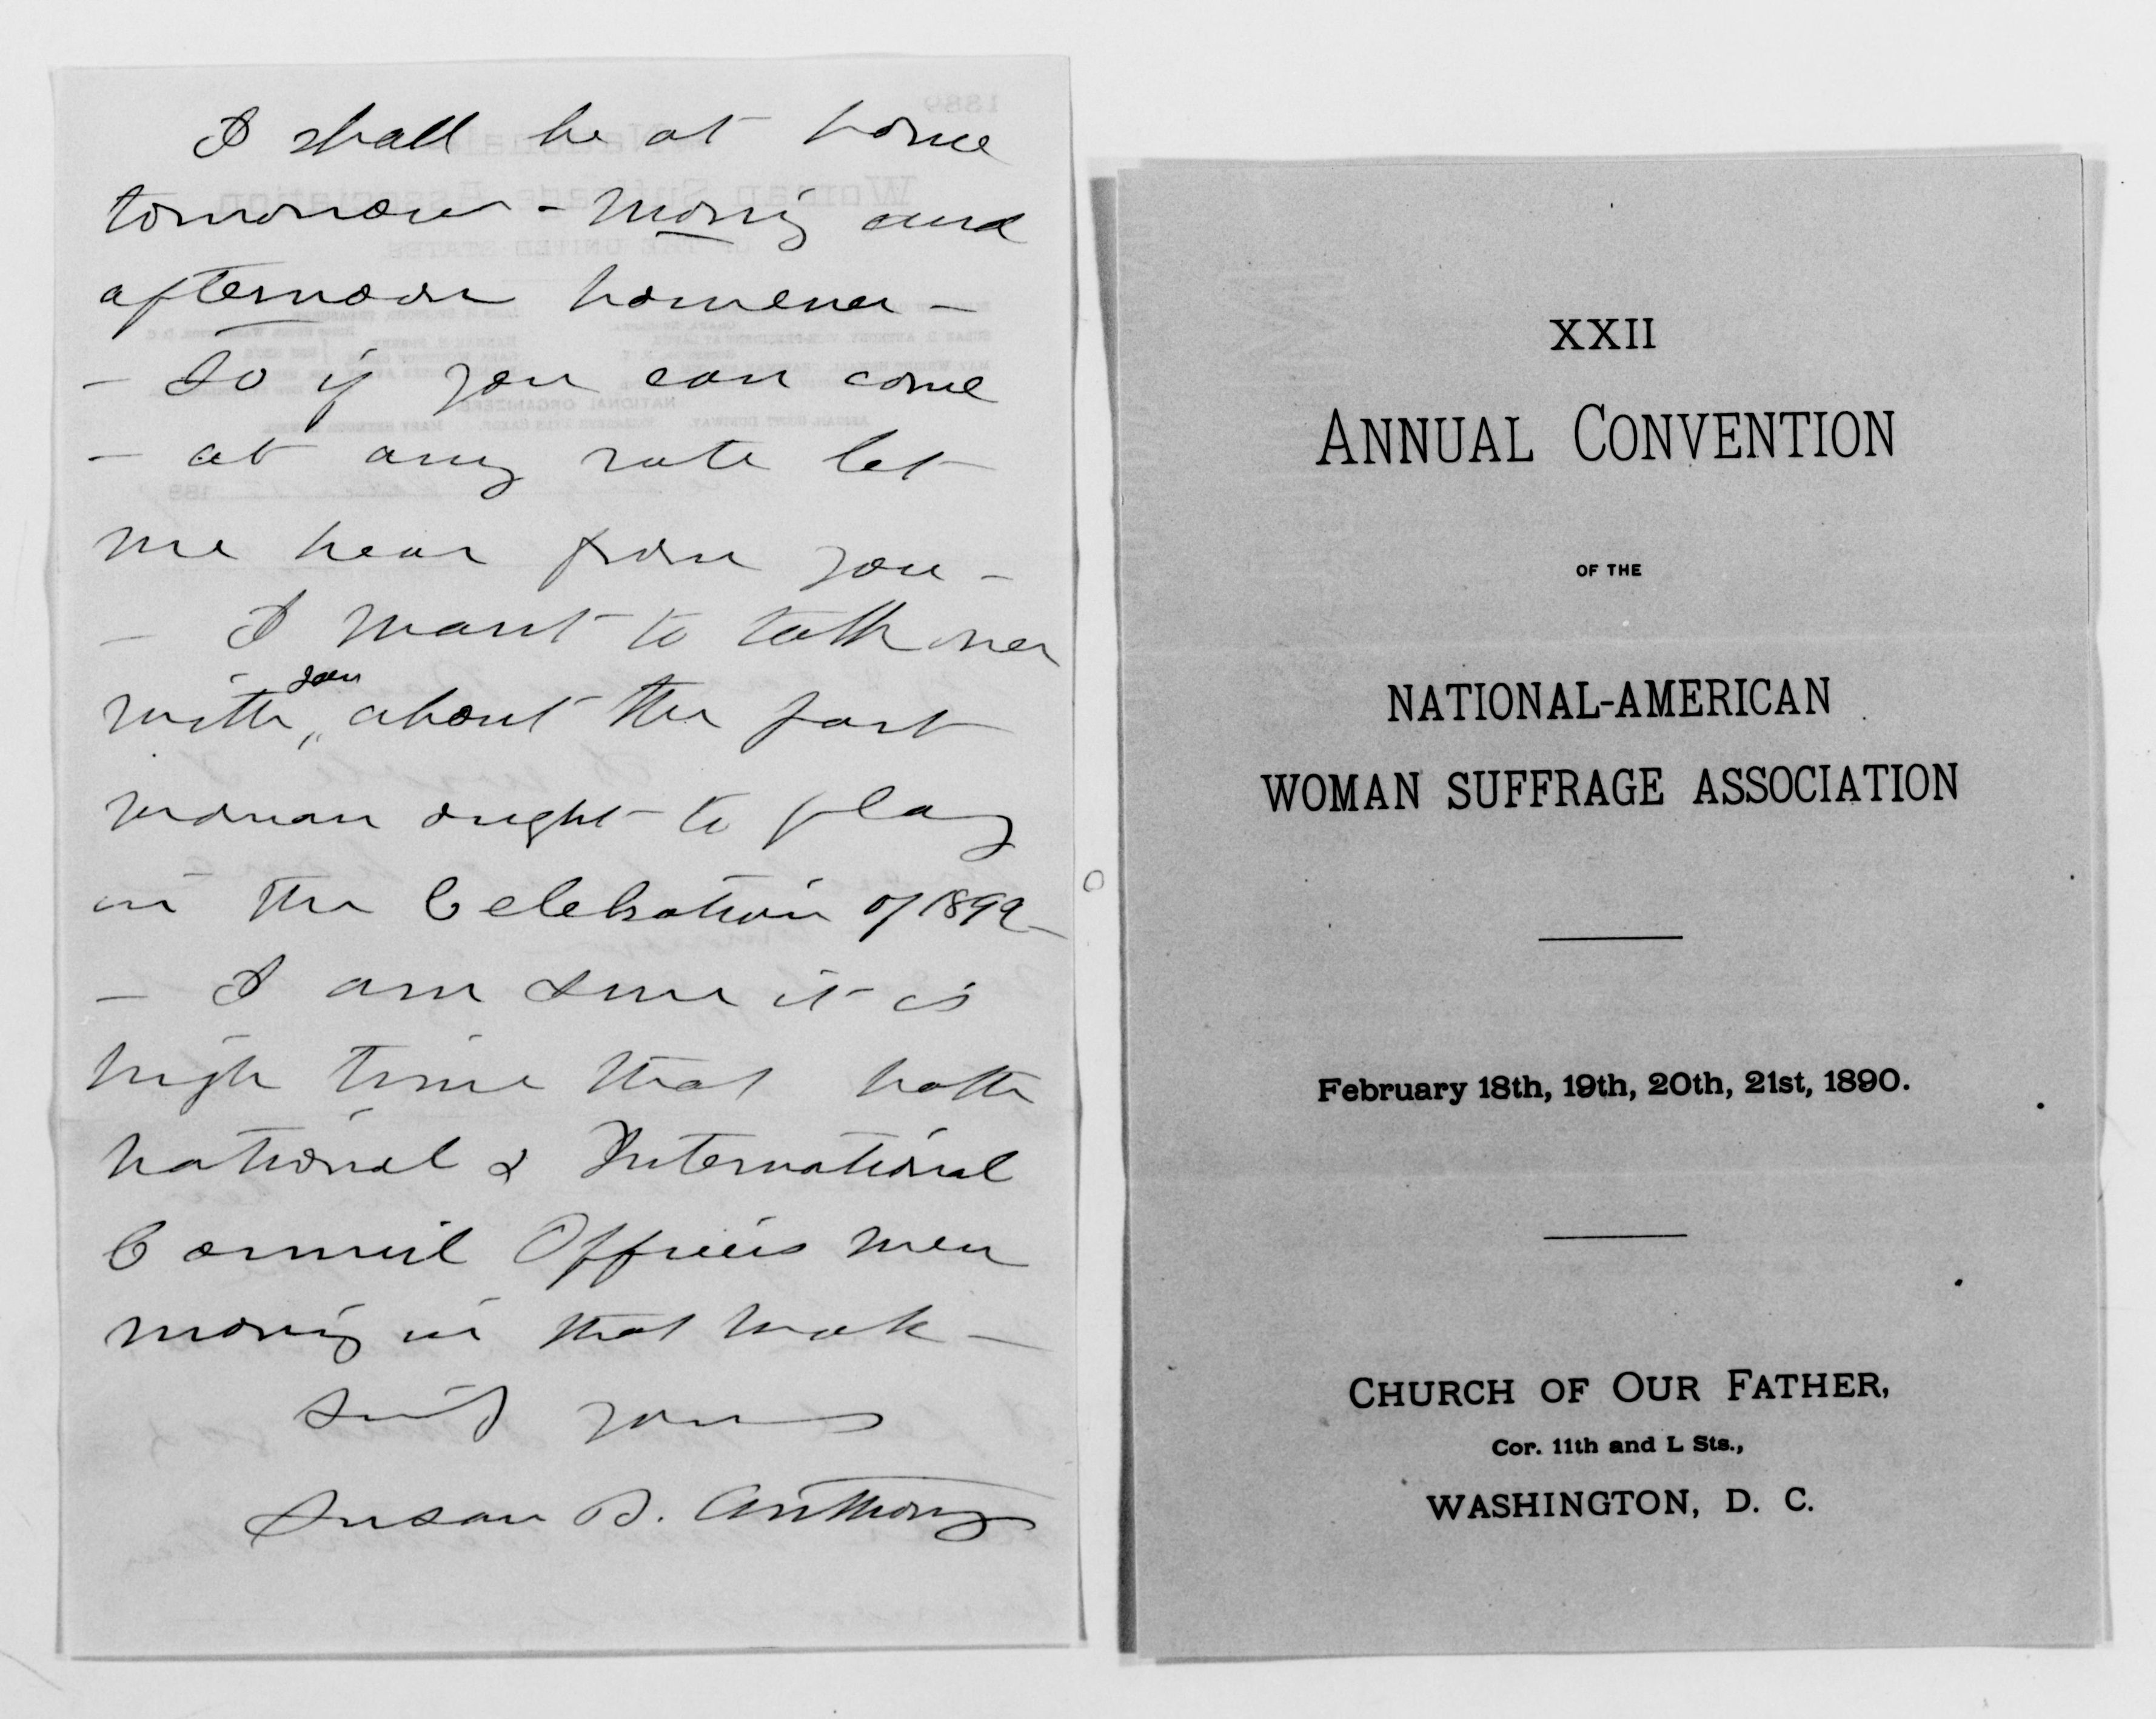 I shall be at home
tomorrow - morning and
afternoon however -
- So if you can come
- at any rate let
me hear from you -
- I want to talk over
with you about the part
woman ought to play
in the Celebration of 1892 -
- I am sure it is
high time that both
National & International
Council Officers were
moving in that work -
Sin'ly yours
Susan B. Anthony
XXII
ANNUAL CONVENTION
OF THE
NATIONAL-AMERICAN
WOMAN SUFFRAGE ASSOCIATION
February 18th, 19th, 20th, 21st, 1890.
CHURCH OF OUR FATHER,
Cor. 11th and L Sts.,
WASHINGTON, D. C.